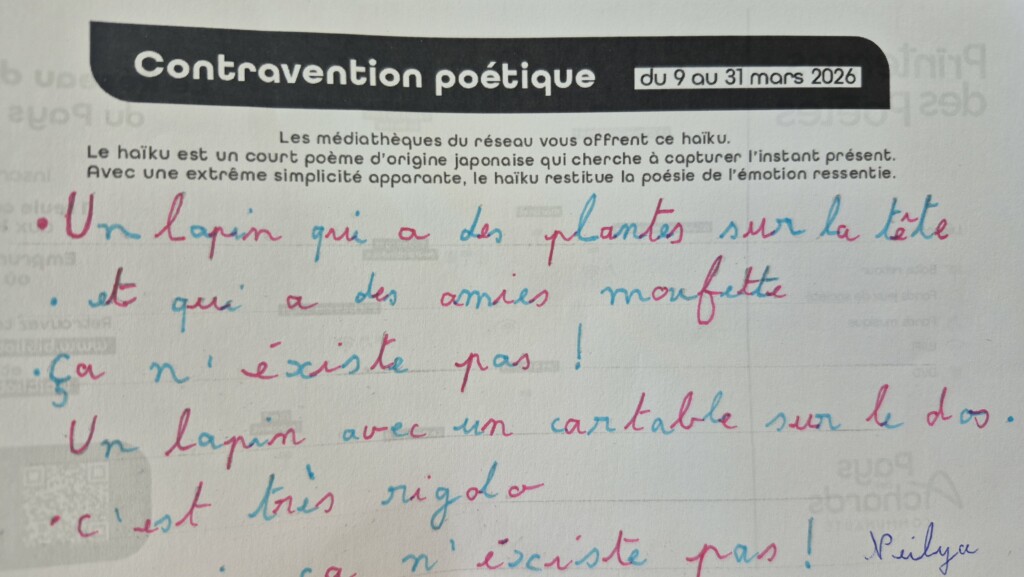 Contravention poétique du 9 au 31 mars 2026
Les médiathèques du réseau vous offrent ce haïku.
Le haïku est un court poème d'origine japonaise qui cherche à capturer l'instant présent.
Avec une extrême simplicité apparante, le haïku restitue la poésie de l'émotion ressentie.
• Un lapin qui a des plantes sur la tête
. et qui a des amies moufette
. Ça n'éxiste pas !
Un lapin avec un cartable sur le dos.
• c'est très rigolo
. ça n'éxiste pas ! Neilya